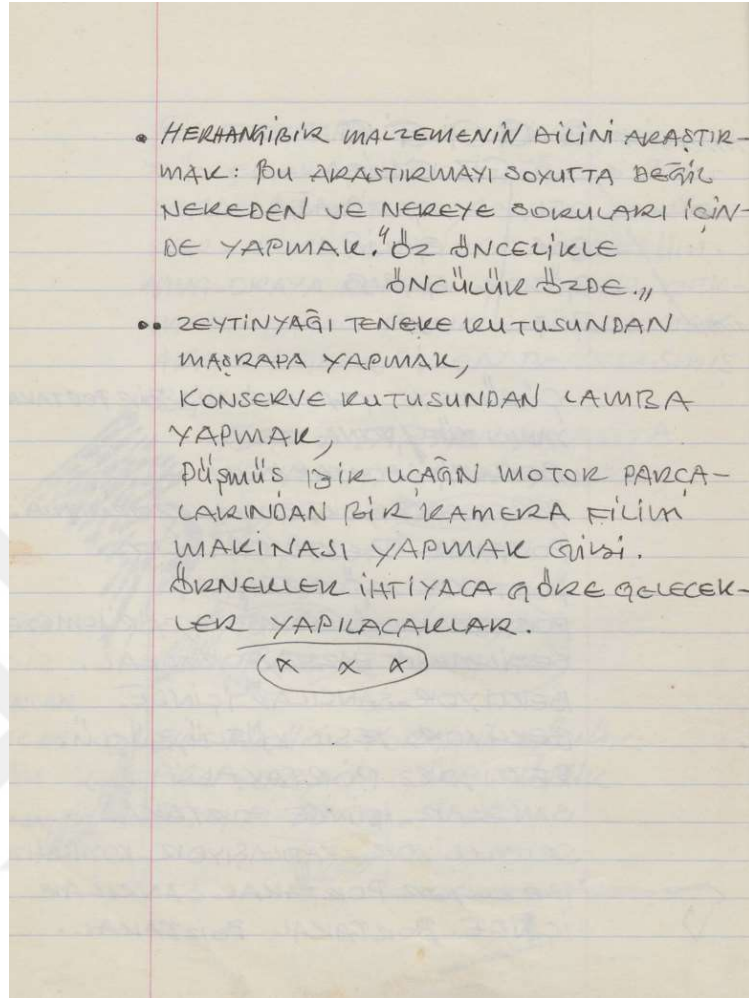 • HERHANGİBİR MALZEMENİN DİLİNİ ARAŞTIR-
MAK: BU ARASTIRMAYI SOYUTTA DEĞİL
NEREDEN VE NEREYE SORULARI İÇİN-
DE YAPMAK. "ÖZ ÖNCELİKLE
ÖNCÜLÜK ÖZDE."
•• ZEYTİNYAĞI TENEKE KUTUSUNDAN
MAŞRAPA YAPMAK,
KONSERVE KUTUSUNDAN LAMBA
YAPMAK,
DÜŞMÜŞ BİR UÇAĞIN MOTOR PARÇA-
LARINDAN BİR KAMERA FİLİM
MAKİNASI YAPMAK GİBİ.
ÖRNEKLER İHTİYACA GÖRE GELECEK-
LER YAPILACAKLAR.
x x x